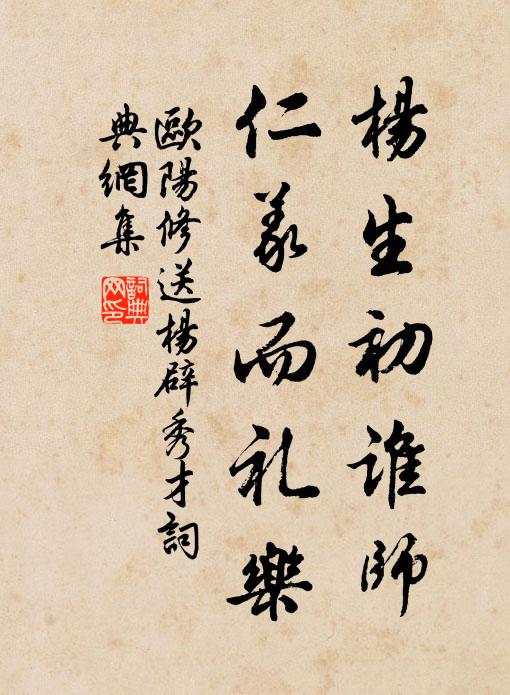 楊生初誰師
仁義而礼樂
歐陽修送楊辟秀才詞
典網集
詞典
网印